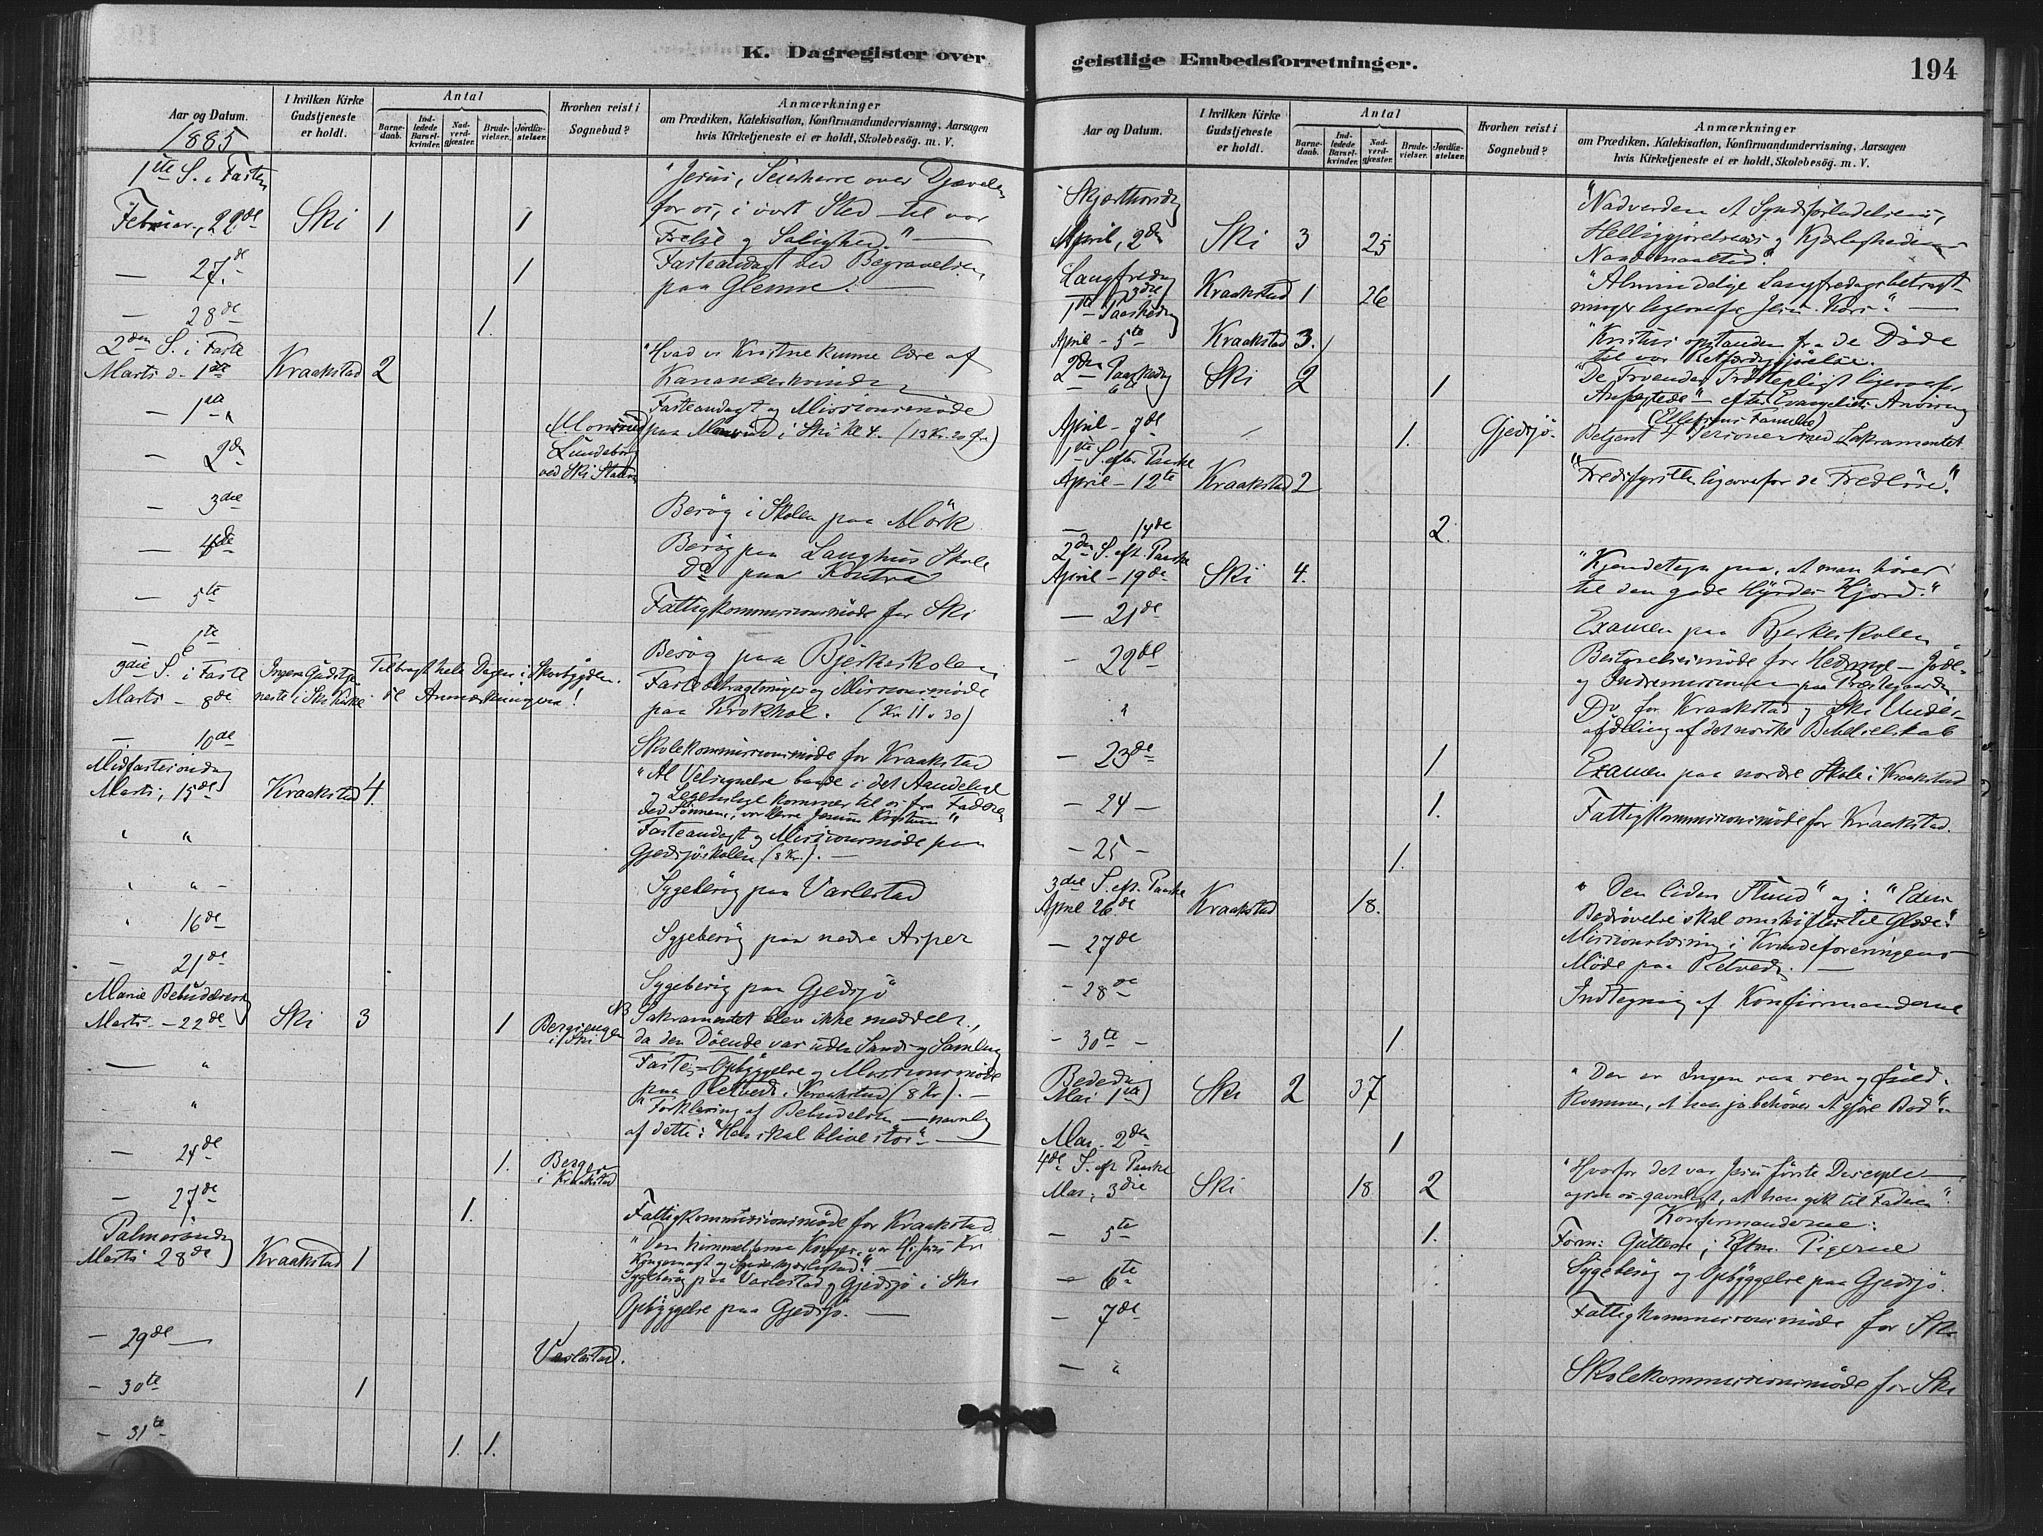 K. Dagregister over
Aar og Datum.
I hvilken Kirke
Gudstjeneste
er holdt.
Antal
Barne-
daab.
Ind-
ledede
Barsel-
kvinder.
Nad-
verd-
gjæster.
Brude-
vielser.
Jordfæ-
stelser.
Hvorhen reist i
Sognebud?
Anmærkninger
om Prædiken, Katekisation, Konfirmandundervisning, Aarsagen
hvis Kirketjeneste ei er holdt, Skolebesøg. m. V.
1885
1ste S. i Fasten
Februar, 22de Ski 1 1
"Jesus, Seierherre over Djævelen
for os, i vort Sted – til vor
Frelse og Salighed."
– 27de 1
Fasteandagt ved Begravelsen
paa Glemne.
– 28de 1.
2den S. i Faste
Marts d. 1ste Kraakstad 2
"Hvad vi Kristne kunne lære af
Fasteandagt og Missionsmøde
paa i Ski kl 4. (13 Kr. 20 Øre)
– 2den
ved Ski Station
– 3die
Besøg i Skolen paa Mørk
– 4de
Besøg paa Langhus Skole
do paa Kontra
– 5te
Fattigkommissionsmøde for Ski
– 6te
Besøg paa Bjerkeskolen
3die S. i Faste
Marts – 8de
Ingen Gudstje-
neste i Ski Kirke
Tilbragt hele Dagen i Skovbygden.
se Anmærkningen!
Fastebetragtninger og Missionsmøde
paa Krokhol. (Kr 11. 30)
– 10de
Skolekommissionsmøde for Kraakstad
Midfastesøndag
Marts, 15de Kraakstad 4.
"Al Velsignelse baade i det Aandelige
og Legemlige kommer til os fra Faderen
ved Sønnen, vor Herre Jesum Kristum"
Fasteandagt og Missionsmøde paa
Gjedsjøskolen (8 Kr.). –
Sygebesøg paa Varlestad
" 16de
Sygebesøg paa nedre Asper
– 21de
Sygebesøg paa Gjedsjø
Mariæ Bebudelsesdag
Marts – 22de Ski 3 1
Bergsengen
i Ski
NB Sakramentet blev ikke meddelt,
da den Døende var uden Sands og Samling
Faste-Opbyggelse og Missionsmøde
paa Retvedt i Kraakstad (8 Kr). –
"Forklaring af Bebudelsen – navnlig
af dette: "Han skal blive stor" –
– 24de 1.
Berger
i Kraakstad
– 27de 1.
Fattigkommissionsmøde for Kraakstad
Palmesøndag
Marts 28de Kraakstad 1
Sygebesøg paa Varlestad og Gjedsjø i Ski
Opbyggelse paa Gjedsjø. –
– 29de –
Varlestad.
– 30te 1
– 31te 1. 1.
geistlige Embedsforretninger.
194
Aar og Datum.
I hvilken Kirke
Gudstjeneste
er holdt.
Antal
Barne-
daab.
Ind-
ledede
Barsel-
kvinder.
Nad-
verd-
gjæster.
Brude-
vielser.
Jordfæ-
stelser.
Hvorhen reist i
Sognebud?
Anmærkninger
om Prædiken, Katekisation, Konfirmandundervisning, Aarsagen
hvis Kirketjeneste ei er holdt, Skolebesøg. m. V.
Skjærthorsdag
April, 2den Ski 3 25
"Nadverden et Syndsforladelsens,
Helliggjørelsens og Kjærlighedens
Naademaaltid."
Langfredag
3die Kraakstad 1 26
"Almindelige Langfredagsbetragt-
ninger ligeoverfor Jesu Kors". –
1ste Paaskedag
April – 5te Kraakstad 3.
"Kristus opstanden fra de Døde
til vor Retfærdiggjørelse.
2den Paaskedag
6 Ski 2 1
April – 7de 1. Gjedsjø.
Betjent 4 Personer med Sakramentet
1ste S. efter Paaske
April – 12te Kraakstad 2
"Fredsfyrsten ligeoverfor de Fredløse."
– 14de 2.
2den S. eft. Paaske
April – 19de Ski 4.
"Kjendetegn paa, at man hører
til den gode Hyrdes Hjord."
– 21de
Examen paa Bjerkeskolen
– 22de
Bestyrelsesmøde for Hedninge-, Jøde-
og Indremissionen paa Præstegaarden
"
Do for Kraakstad og Ski Under-
afdeling af det norske Bibelselskab
– 23de 1
Examen paa nordre Skole i Kraakstad
– 24 – 1.
Fattigkommissionsmøde for Kraakstad.
– 25 – 1.
3die S. eft. Paaske
April 26de Kraakstad 18.
"Den liden Stund" og: "Eders
Bedrøvelse skal omskiftes til Glæde."
– 27de
Missionslæsning i Kvindeforeningens
Møde paa Retvedt. –
– 28de
Indtegning af Konfirmanderne
– 30te – 1.
Bededag
Mai 1ste Ski 2 37
"Der er Ingen saa ren og fuld-
kommen, at han jo behøver at gjøre Bod".
Mai – 2den 1
4de S. eft. Paaske
Mai, 3die Ski 18 2
"Hvorfor det var Jesu første Disciple –
ogsaa os – gavnligt, at han gik til Faderen".
Konfirmanderne:
– 5te 1.
Form: Gutterne, Eftm. Pigerne
– 6te
Sygebesøg og Opbyggelse paa Gjedsjø.
– 7de
Fattigkommissionsmøde for Ski
– "
Skolekommissionsmøde for Ski